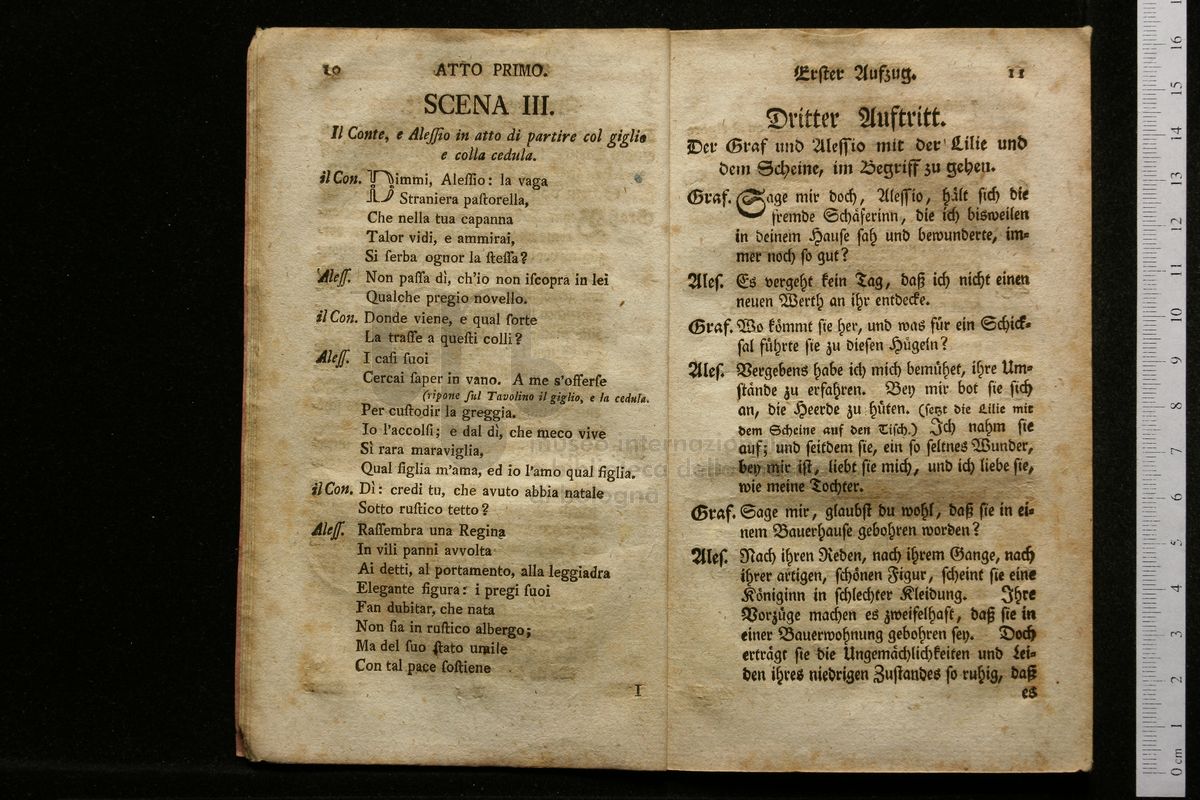 10 ATTO PRIMO.
SCENA III.
Il Conte, e Aleſſio in atto di partire col giglio
e colla cedula.
il Con. Dimmi, Aleſſio: la vaga
Straniera paſtorella,
Che nella tua capanna
Talor vidi, e ammirai,
Si ſerba ognor la ſteſſa?
Aleſſ. Non paſſa dì, ch'io non iſcopra in lei
Qualche pregio novello.
il Con. Donde viene, e qual ſorte
La traſſe a queſti colli?
Aleſſ. I caſi ſuoi
Cercai ſaper in vano. A me s'offerſe
(ripone ſul Tavolino il giglio, e la cedula.
Per cuſtodir la greggia.
Io l'accolſi; e dal dì, che meco vive
Sì rara maraviglia,
Qual figlia m'ama, ed io l'amo qual figlia.
il Con. Dì: credi tu, che avuto abbia natale
Sotto ruſtico tetto?
Aleſſ. Raſſembra una Regina
In vili panni avvolta
Ai detti, al portamento, alla leggiadra
Elegante figura: i pregi ſuoi
Fan dubitar, che nata
Non ſia in ruſtico albergo;
Ma del ſuo ſtato umile
Con tal pace ſoſtiene
I
Erſter Aufzug. 11
Dritter Auftritt.
Der Graf und Aleſſio mit der Lilie und
dem Scheine, im Begriff zu gehen.
Graf. Sage mir doch, Aleſſio, hält ſich die
fremde Schäferinn, die ich bisweilen
in deinem Hauſe ſah und bewunderte, im-
mer noch ſo gut?
Aleſ. Es vergeht kein Tag, daß ich nicht einen
neuen Werth an ihr entdecke.
Graf. Wo kömmt ſie her, und was für ein Schick-
ſal führte ſie zu dieſen Hügeln?
Aleſ. Vergebens habe ich mich bemühet, ihre Um-
ſtände zu erfahren. Bey mir bot ſie ſich
an, die Heerde zu hüten. (ſetzt die Lilie mit
dem Scheine auf den Tiſch.) Ich nahm ſie
auf; und ſeitdem ſie, ein ſo ſeltnes Wunder,
bey mir iſt, liebt ſie mich, und ich liebe ſie,
wie meine Tochter.
Graf. Sage mir, glaubſt du wohl, daß ſie in ei-
nem Bauerhauſe gebohren worden?
Aleſ. Nach ihren Reden, nach ihrem Gange, nach
ihrer artigen, ſchönen Figur, ſcheint ſie eine
Königinn in ſchlechter Kleidung. Ihre
Vorzüge machen es zweifelhaft, daß ſie in
einer Bauerwohnung gebohren ſey. Doch
erträgt ſie die Ungemächlichkeiten und Lei-
den ihres niedrigen Zuſtandes ſo ruhig, daß
es
0 cm 1 2 3 4 5 6 7 8 9 10 11 12 13 14 15 16